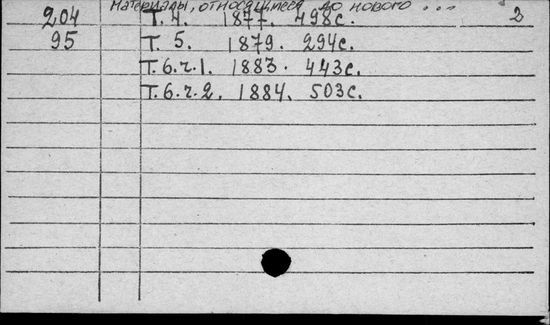 Материалы, относящиеся до нового ...
204 Т. 4. 1877. 498с. 2
95 Т. 5. 1879. 294с.
Т. 6. ч. 1. 1883. 443с.
Т. 6. ч. 2. 1884. 503с.